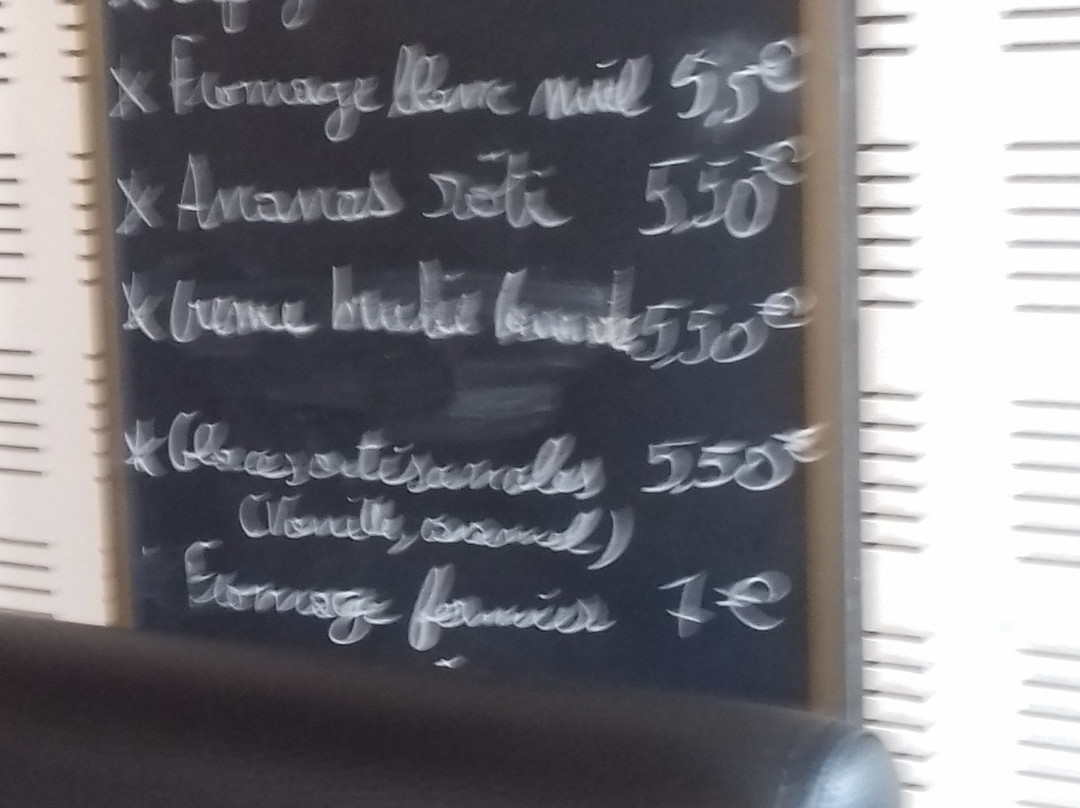 * Fromage blanc miel 5,5€
* Ananas roti 5,50€
* Creme brulée 5,50€
* Glaces artisanales 5,50€
(Vanille, caramel)
Fromage fermier 7€